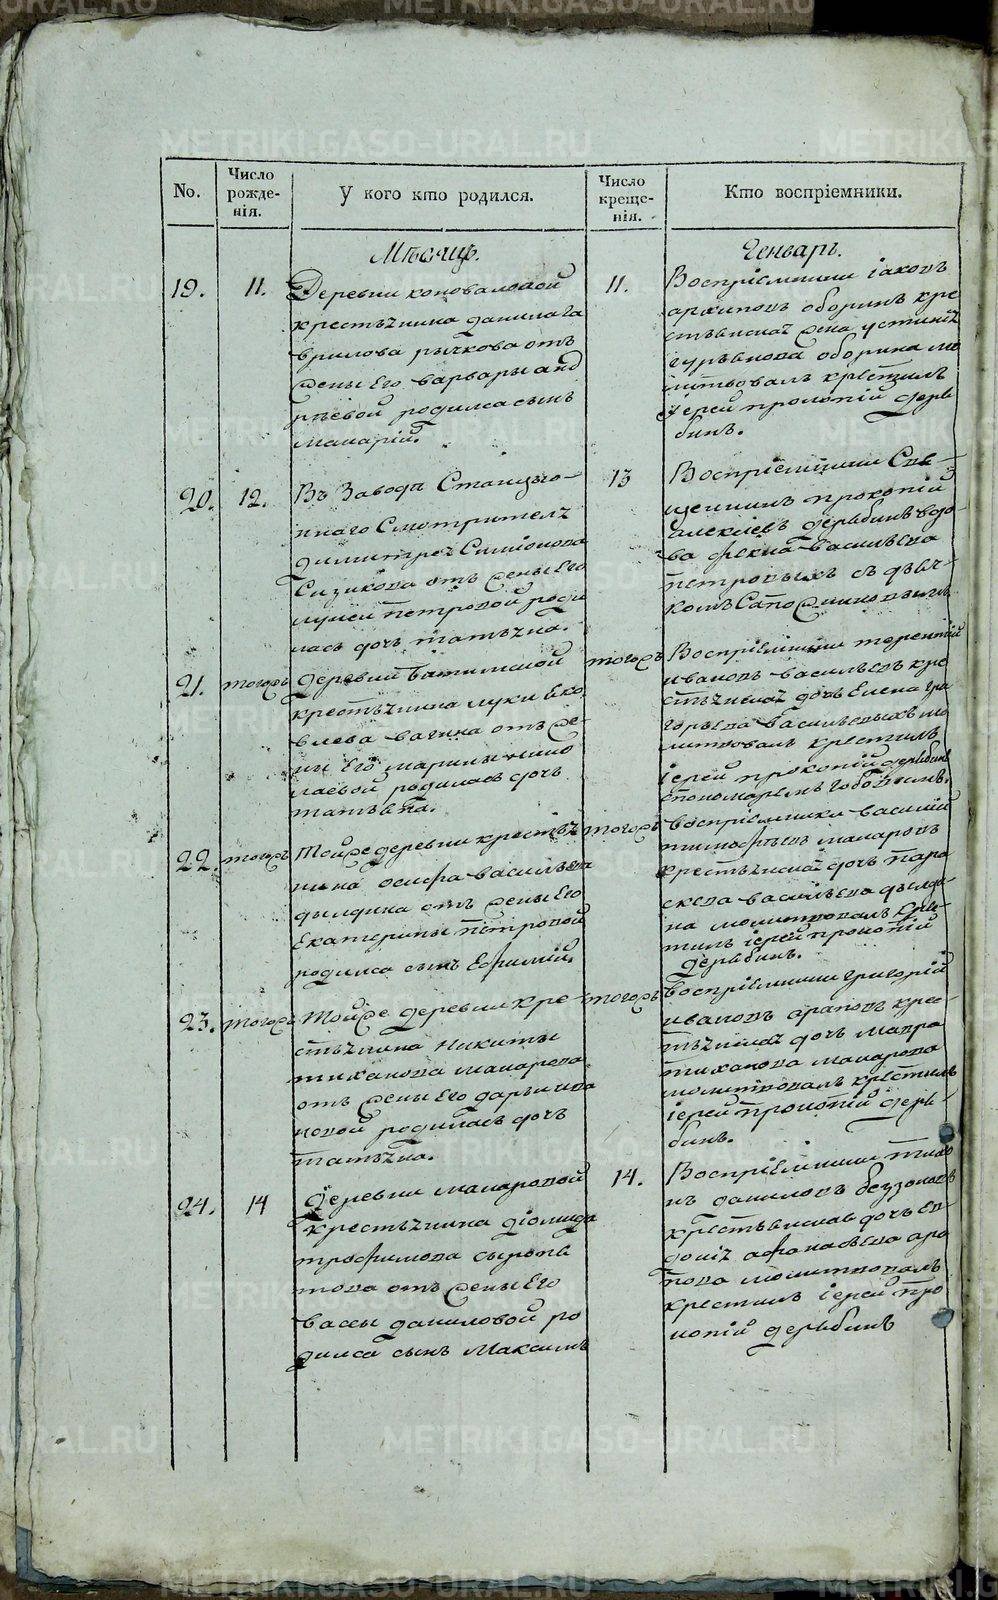 No.
Число рожде-нія.
У кого кто родился.
Число креще-нія.
Кто воспріемники.
Мѣсяцъ.
Генварь.
19.
11.
Деревни коноваловой
крестьянина данила га
врилова рычкова отъ
жены Его варвары анд
рѣевой родился сынъ
макарій.
11.
Воспріемники іаковъ
архиповъ оборинъ кре
стьянская жена устинія
гурьянова оборина мо
литвовалъ крестилъ
іерей прокопій деря
бинъ.
20.
12.
Въ Заводѣ Станцыо-
ннаго Смотрителя
димитрея Симіонова
Сизикова отъ жены Его
петровой роди
лась дочь татьяна.
13
Воспріемники Свя-
щенникъ прокопій
алексіевъ дерябинъ вдо-
ва фекла васильева
петровыхъ съ дьяч-
комъ Сапожниковымъ
21.
тогожъ
деревни
крестьянина луки
вагина отъ же-
ны Его марины нико
лаевой родилась дочь
татьяна.
тогожъ
Воспріемники терентій
ивановъ васильевъ кре
стьянская дочь Елена гри
горьева васильевыхъ мо
литвовалъ крестилъ
іерей прокопій дерябинъ
съ пономаремъ
22.
тогожъ
Тойже деревни кресть
нина осипа васильева
дылдина отъ жены Его
Екатерины петровой
родился сынъ Ефимій.
тогожъ
воспріемники василій
тимофѣевъ макаровъ
крестьянская дочь пара
скева васильева дылди-
на молитвовалъ крес-
тилъ іерей прокопій
дерябинъ.
23.
тогожъ
Тойже деревни кре
стьянина никиты
тиханова макарова
отъ жены Его дарьи ива
новой родилась дочь
татьяна.
тогожъ
воспріемники григорій
ивановъ араповъ крес-
тьянская дочь мавра
тиханова макарова
молитвовалъ крестилъ
іерей прокопій деря-
бинъ.
24.
14
Деревни макаровой
крестьянина діомида
трофимова сыропя
това отъ жены Его
вассы даниловой ро
дился сынъ Максимъ
14.
Воспріемники тихо
нъ даниловъ
крестьянская дочь Ев
докія афанасьева ара
пова молитвовалъ
крестилъ іерей про
копій дерябинъ
METRIKI.GASO-URAL.RU